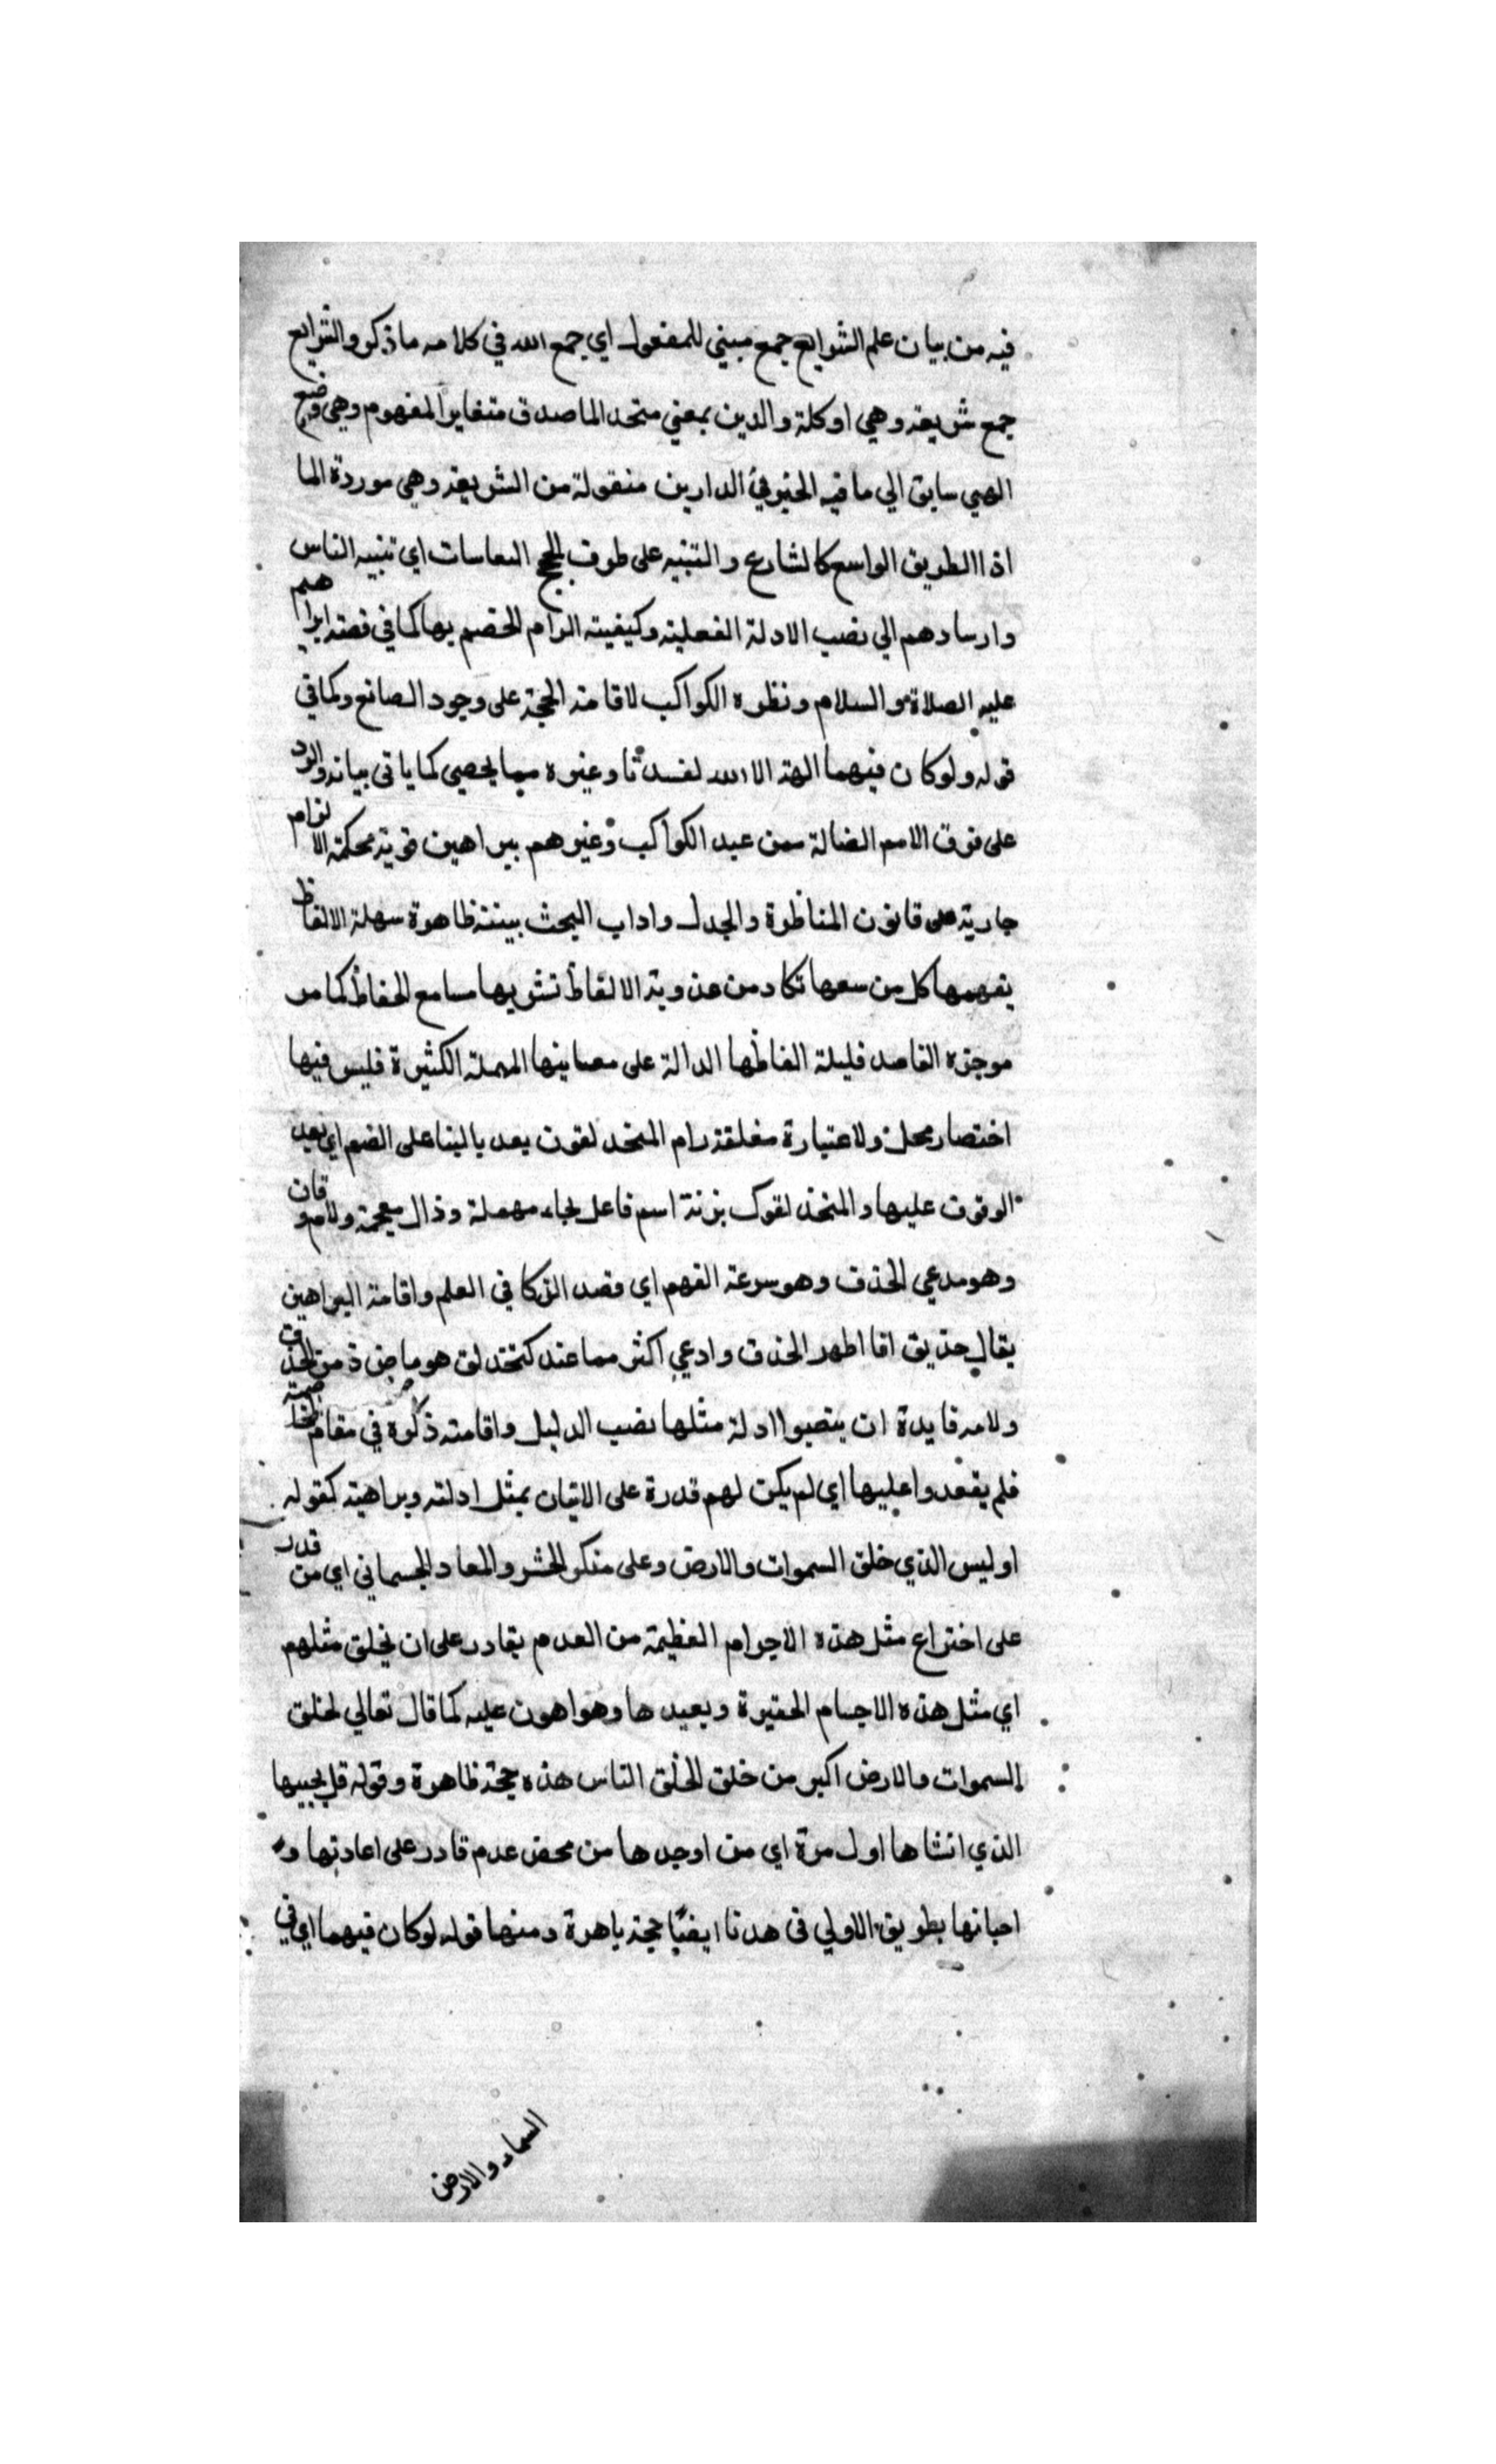 فيه من بيان علم الشرايع جمع مبني للمفعول اي جمع الله في كلامه ما ذكر والشرايع
جمع شريعه وهي اوكلة والدين بمعني متحد الماصدق متغاير المفهوم وهي وضع
الهي سايق الي ما فيه الخير في الدارين منقولة من الشريعه وهي موردة الما
اذ االطريق الواسع كالشارع والتنبيه على طرق الحجج اي تنبيه الناس
وارسادهم الي نصب الادلة الفعلية وكيفيته الزام الخصم بها كما في قصته ابراهيم
عليه الصلاة والسلام ونظره الكواكب لاقامته الحجة على وجود الصانع وكما في
قوله ولو كان فيهما الهة الا الله لفسدتا وغيره مما يحصي كما ياتي بيانه والرد
على فرق الامم الضالة ممن عبد الكواكب وغيرهم ببراهين قوية محكمة الالزام
جارية على قانون المناظرة والجدل واداب البحث بينة ظاهرة سهلة الالفاظ
يفهمها كل من سمعها تكاد من عذوبة الالفاظ تشربها مسامع الحفاظ كما مر
موجزه القاصد قليلة الفاظها الدالة على معانيها المهملة الكثيرة فليس فيها
اختصار محل ولا عتبارة مغلقة رام المتحد لقون بعد بالبنا على الضم اي بعد
الوقوف عليها والمتحذ لقون بزنة اسم فاعل بحاء مهملة وذال معجمة ولام وقاف
وهو مدعي الحذق وهو سرعة الفهم اي قصد الذكا في العلم واقامة البراهين
يقال حذيق اذا اظهر الحذق وادعي اكثر مما عند كتحذلق هو ماض ذ من الحذق
ولامه فايدة ان ينصبوا ادلة مثلها نصب الدليل واقامته ذكره في مقام
فلم يقعدوا عليها اي لم يكن لهم قدرة على الاتيان بمثل ادلته وبراهينه كقوله
اوليس الذي خلق السموات والارض وعلى منكر الحشر والمعاد الجسماني اي من قدر
على اختراع مثل هذه الاجرام العظيمة من العدم بقادر على ان يخلق مثلهم
اي مثل هذه الاجسام الحقيرة ويعيدها وهو اهون عليه كما قال تعالي لخلق
السموات والارض اكبر من خلق الخلق الناس هذه حجة ظاهرة وقوله قل يحييها
الذي انشاها اول مرة اي من اوجدها من محض عدم قادر على اعادتها و
احيائها بطريق الاولي في هدنا ايضًا حجة باهرة ومنها قوله لو كان فيهما اي في
السماء والارض